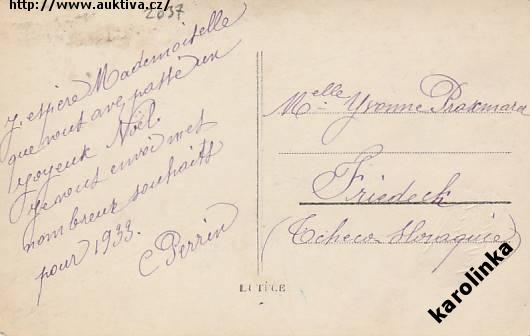 http://www.auktiva.cz/
2037
J'espère Mademoiselle
que vous avez passé un
Joyeux Noël.
Je vous envoi mes
nombreux souhaits
pour 1933.
C Perrin
Melle Yvonne
Friedeck
(Tcheco Slovaquie)
LUTÈCE
karolinka